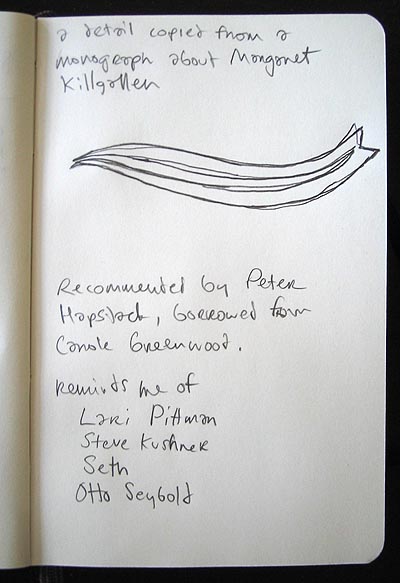 a detail copied from a
monograph about Margaret
Killgallen
Recommended by Peter
Hapstack, borrowed from
Carole Greenwood.
reminds me of
Lari Pittman
Steve Kushner
Seth
Otto Seybold